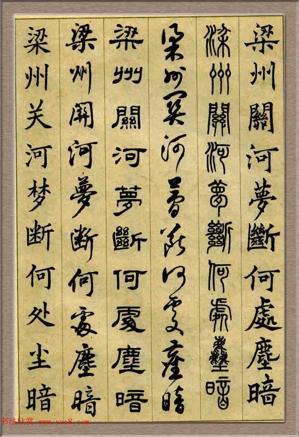 梁州關河夢斷何處塵暗
梁州關河夢斷何處塵暗
梁州關河夢斷何處塵暗
梁州關河夢斷何處塵暗
梁州關河夢斷何處塵暗
梁州关河梦断何处尘暗
书法欣赏 www.yac8.com